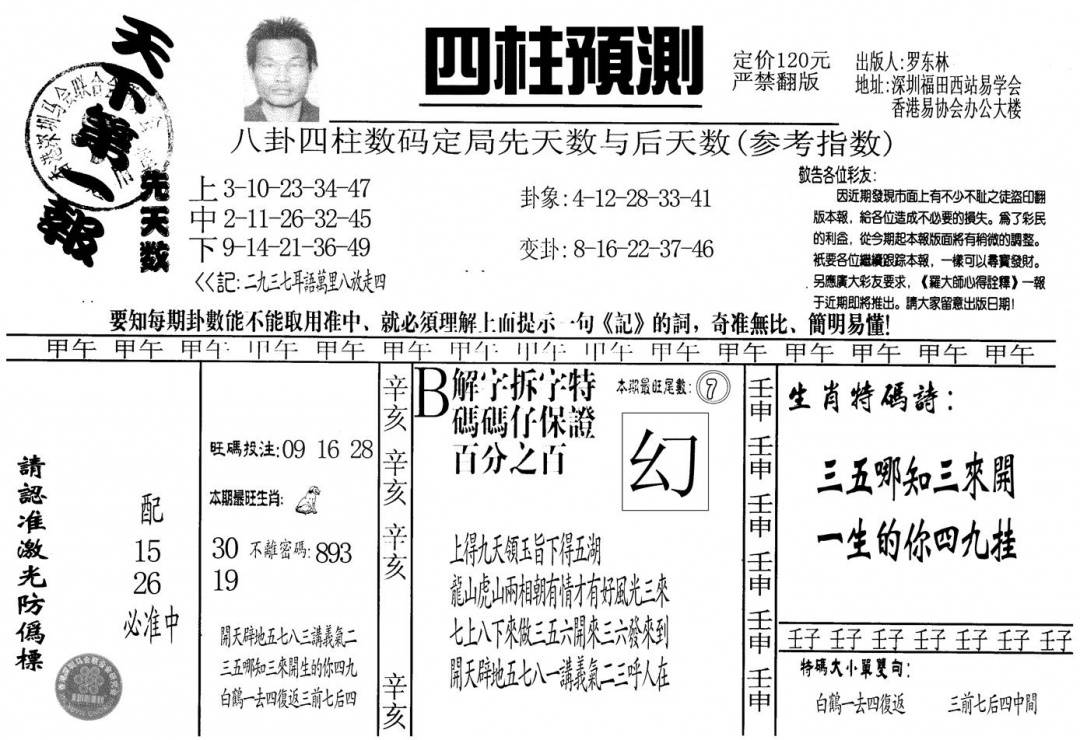 天下第一報
四柱預測
定价120元
严禁翻版
出版人:罗东林
地址:深圳福田西站易学会
香港易协会办公大楼
八卦四柱数码定局先天数与后天数(参考指数)
先天数
上3-10-23-34-47
中2-11-26-32-45
下9-14-21-36-49
卦象:4-12-28-33-41
变卦:8-16-22-37-46
<<記:二九三七耳語萬里八放走四
敬告各位彩友:
因近期發現市面上有不少不耻之徒盜印翻
版本報，給各位造成不必要的損失。爲了彩民
的利益，從今期起本報版面將有稍微的調整。
衹要各位繼續跟踪本報，一樣可以尋寶發財。
另應廣大彩友要求，《羅大師心得詮釋》一報
于近期即將推出。請大家留意出版日期!
要知每期卦數能不能取用准中、就必須理解上面提示一句《記》的詞，奇准無比、簡明易懂!
甲午 甲午 甲午 甲午 甲午 甲午 甲午 甲午 甲午 甲午 甲午 甲午 甲午 甲午 甲午
請認准激光防僞標
配
15
26
必准中
旺碼投注:09 16 28
本期最旺生肖:
30 不離密碼:893
19
開天辟地五七八三講義氣二
三五哪知三來開生的你四九
白鶴一去四復返三前七后四
辛亥
辛亥
辛亥
辛亥
B解字拆字特
碼碼仔保證
百分之百
本期最旺尾數:7
幻
上得九天領玉旨下得五湖
龍山虎山兩相朝有情才有好風光三來
七上八下來做三五六開來三六發來到
開天辟地五七八一講義氣二三呼人在
壬申
壬申
壬申
壬申
壬申
壬申
生肖特碼詩:
三五哪知三來開
一生的你四九挂
壬子 壬子 壬子 壬子 壬子 壬子 壬子
特碼大小單雙句:
白鶴一去四復返 三前七后四中間